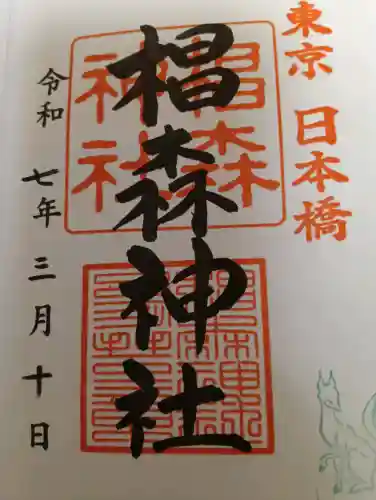 東京 日本橋
椙森神社
椙森
神社
令和 七年 三月十日